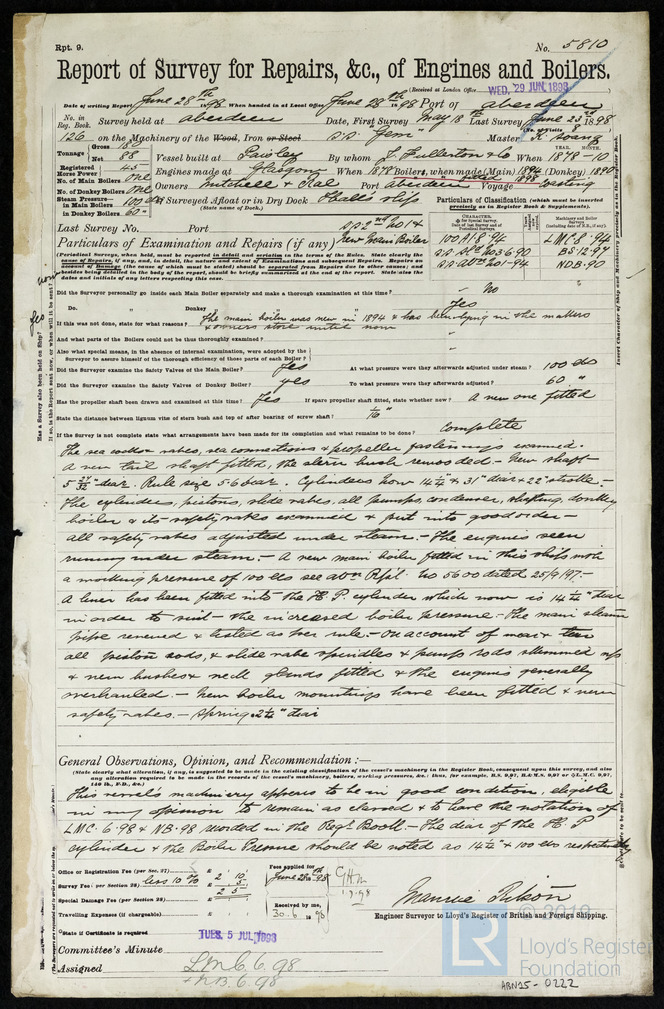 Rpt. 9.
No. 5810
Report of Survey for Repairs, &c., of Engines and Boilers.
(Received at London Office WED. 29 JUN. 1898
Date of writing Report June 28th 1898 When handed in at Local Office June 28th 1898 Port of Aberdeen
No. in Reg. Book. Survey held at Aberdeen Date, First Survey May 18th Last Survey June 23rd 1898
(No. of Visits 8)
126 on the Machinery of the Wood, Iron or Steel S.S. "Gem" Master
Tonnage Gross Net 88
Vessel built at Paisley By whom J. Fullerton & Co When 1878-10
Registered Horse Power 45
Engines made at Glasgow When 1878 Boilers, when made (Main) 1894 (Donkey) 1890
No. of Main Boilers one
No. of Donkey Boilers one
Owners Mitchell & Rae Port Aberdeen Voyage Coasting
Steam Pressure— in Main Boilers 100 lbs
in Donkey Boilers 60 "
If Surveyed Afloat or in Dry Dock Hall's slip
(State name of Dock.)
Particulars of Classification (which must be inserted precisely as in Register Book & Supplements).
Last Survey No. Port
S.S. 2nd No 1 &
Particulars of Examination and Repairs (if any) New Main Boiler
CHARACTER.
Machinery and Boiler Surveys
100A1 8.94 LMC 8.94
S.S. No 3 6.90 BS 12.97
S.S. No 1-94 NDB.90
Insert Character of Ship and Machinery precisely as in the Register Book.
(Periodical Surveys, when held, must be reported in detail and seriatim in the terms of the Rules. State clearly the cause of Repairs, if any, and, in detail, the nature and extent of Examinations and subsequent Repairs. Repairs on account of Damage (the cause of which must be stated) should be separated from Repairs due to other causes; and besides being detailed in the body of the report, should be briefly summarised at the end of the report. State also the dates and initials of any letters respecting this case.
Did the Surveyor personally go inside each Main Boiler separately and make a thorough examination at this time? No
Do. " Donkey " " " Yes
If this was not done, state for what reasons? The main boiler was new in 1894 & has been lying in the makers & owners store until now
And what parts of the Boilers could not be thus thoroughly examined? "
Also what special means, in the absence of internal examination, were adopted by the Surveyor to assure himself of the thorough efficiency of those parts of each Boiler? "
Did the Surveyor examine the Safety Valves of the Main Boiler? Yes At what pressure were they afterwards adjusted under steam? 100 lbs
Did the Surveyor examine the Safety Valves of Donkey Boiler? Yes To what pressure were they afterwards adjusted? 60 "
Has the propeller shaft been drawn and examined at this time? Yes If spare propeller shaft fitted, state whether new? A new one fitted
State the distance between lignum vitæ of stern bush and top of after bearing of screw shaft? 1/16"
If the Survey is not complete state what arrangements have been made for its completion and what remains to be done? Complete
The sea cocks & valves, sea connections & propeller fastenings examined.
A new tail shaft fitted, the stern bush rewooded.— New shaft
5 24/32" diar. Rule size 5.6 diar. Cylinders now 14½" & 31" diar × 22" stroke.—
The cylinders, pistons, slide valves, all pumps, condenser, shafting, donkey
boiler & its safety valves examined & put into good order—
all safety valves adjusted under steam.— The engines seen
running under steam.— A new main boiler fitted in this ship with
a working pressure of 100 lbs see Abdn Rpt. No 5600 dated 25/9/97.—
A liner has been fitted into the H.P. cylinder which now is 14½" diar
in order to suit the increased boiler pressure— The main steam
pipe renewed & tested as per rule.— On account of wear & tear
all piston rods, & slide valve spindles & pump rods skimmed up
& new bushes & neck glands fitted & the engines generally
overhauled.— New boiler mountings have been fitted & new
safety valves.— Spring 2½" diar
General Observations, Opinion, and Recommendation:—
(State clearly what alteration, if any, is suggested to be made in the existing classification of the vessel's machinery in the Register Book, consequent upon this survey, and also any alteration required to be made in the records of the vessel's machinery, boilers, working pressures, &c.: thus, for example, B.S. 9,97, B.&M.S. 9,97 or L.M.C. 9,97, 140 lb., F.D., &c.)
This vessel's machinery appears to be in good condition, eligible
in my opinion to remain as classed & to have the notation of
LMC. 6.98 & NB.98 recorded in the Regr Book.— The diar of the H.P
cylinder & the Boiler Pressure should be noted as 14½" & 100 lbs respectively
Office or Registration Fee (per Sec. 27)
Survey Fee (per Section 28) less 10% £ 2 10
5
Special Damage Fee (per Section 28) £ 2 5
Travelling Expenses (if chargeable) £
Fees applied for June 28th 1898
Received by me, 30.6.1898
State if Certificate is required
Engineer Surveyor to Lloyd's Register of British and Foreign Shipping.
TUES. 5 JUL. 1898
Committee's Minute
Assigned LMC 6.98
+ NB 6.98
© 2019
LR
Lloyd's Register Foundation
ABN25-0222